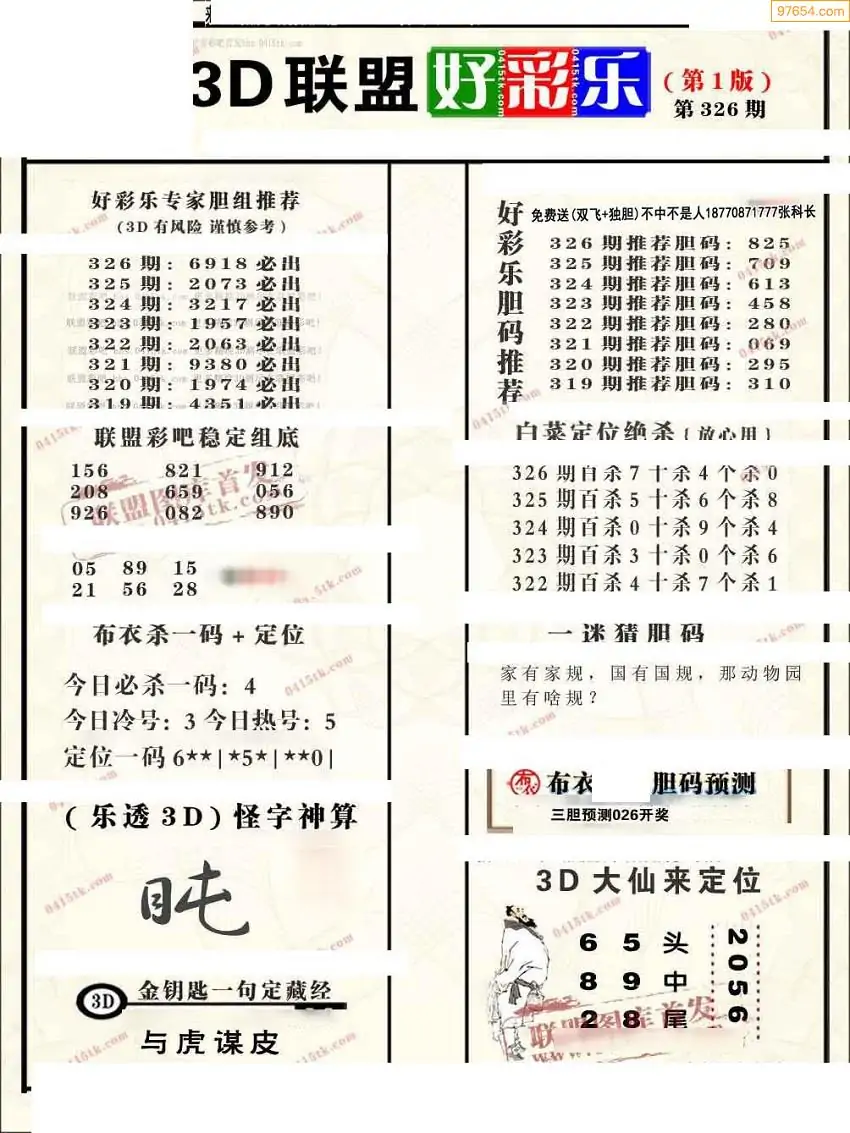 97654.com
3D联盟好彩乐
(第1版)
第326期
好彩乐专家胆组推荐
(3D有风险 谨慎参考)
326期: 6918必出
325期: 2073必出
324期: 3217必出
323期: 1957必出
322期: 2063必出
321期: 9380必出
320期: 1974必出
319期: 4351必出
联盟彩吧稳定组底
156 821 912
208 659 056
926 082 890
05 89 15
21 56 28
布衣杀一码+定位
今日必杀一码: 4
今日冷号: 3 今日热号: 5
定位一码 6**|*5*|**0|
(乐透3D)怪字神算
3D 金钥匙一句定藏经
与虎谋皮
好彩乐胆码推荐
免费送(双飞+独胆)不中不是人18770871777张科长
326期推荐胆码: 825
325期推荐胆码: 709
324期推荐胆码: 613
323期推荐胆码: 458
322期推荐胆码: 280
321期推荐胆码: 069
320期推荐胆码: 295
319期推荐胆码: 310
白菜定位绝杀{放心用}
326期百杀7十杀4个杀0
325期百杀5十杀6个杀8
324期百杀0十杀9个杀4
323期百杀3十杀0个杀6
322期百杀4十杀7个杀1
一迷猜胆码
家有家规，国有国规，那动物园
里有啥规？
布衣 布衣 胆码预测
三胆预测026开奖
3D大仙来定位
6 5 头
8 9 中
2 8 尾
2056
联盟图库首发
0415tk.com